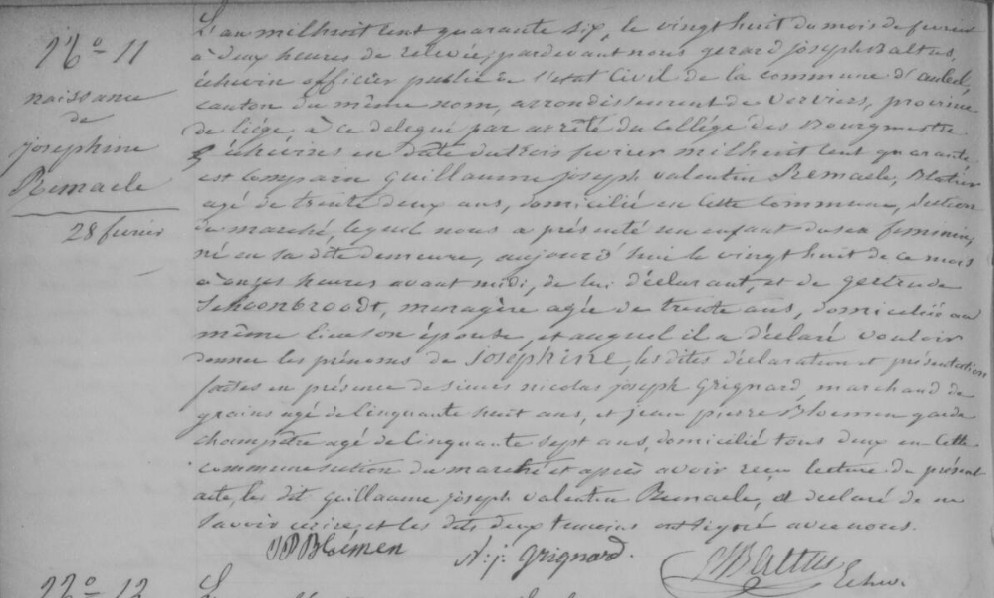 N° 11
naissance
de
josephine
Remacle
28 fevrier
L'an mil huit cent quarante six, le vingt huit du mois de fevrier
à deux heures de relevée, pardevant nous gerard joseph Baltus,
échevin officier public de l'état Civil de la commune d'aubel,
canton du même nom, arrondissement de verviers, province
de liége, à ce delegué par arrêté du Collége des Bourgmestre
& échevins en date du trois fevrier mil huit cent quarante
est comparu guillaume joseph valentin Remacle,
agé de trente deux ans, domicilié en cette commune, section
du marché, lequel nous a présenté un enfant du sex feminin,
né en sa dite demeure, aujourd'hui le vingt huit de ce mois
à onze heures avant midi, de lui déclarant, et de gertrude
Schoonbroodt, menagère agée de trente ans, domiciliée au
même lieu son épouse, et auquel il a déclaré vouloir
donner les prénoms de Josephine, les dites déclaration et présentation
faites en présence de sieurs nicolas joseph Grignard, marchand de
grains agé de cinquante huit ans, et jean pierre Bloemen garde
champêtre agé de cinquante sept ans, domicilié tous deux en cette
commune section du marché et après avoir reçu lecture du présent
acte, les dit guillaume joseph valentin Remacle, a declaré de ne
savoir ecrire, et les dits deux temoins ont signé avec nous.
JP Bloémen N. j. Grignard. Baltus Echev.
12